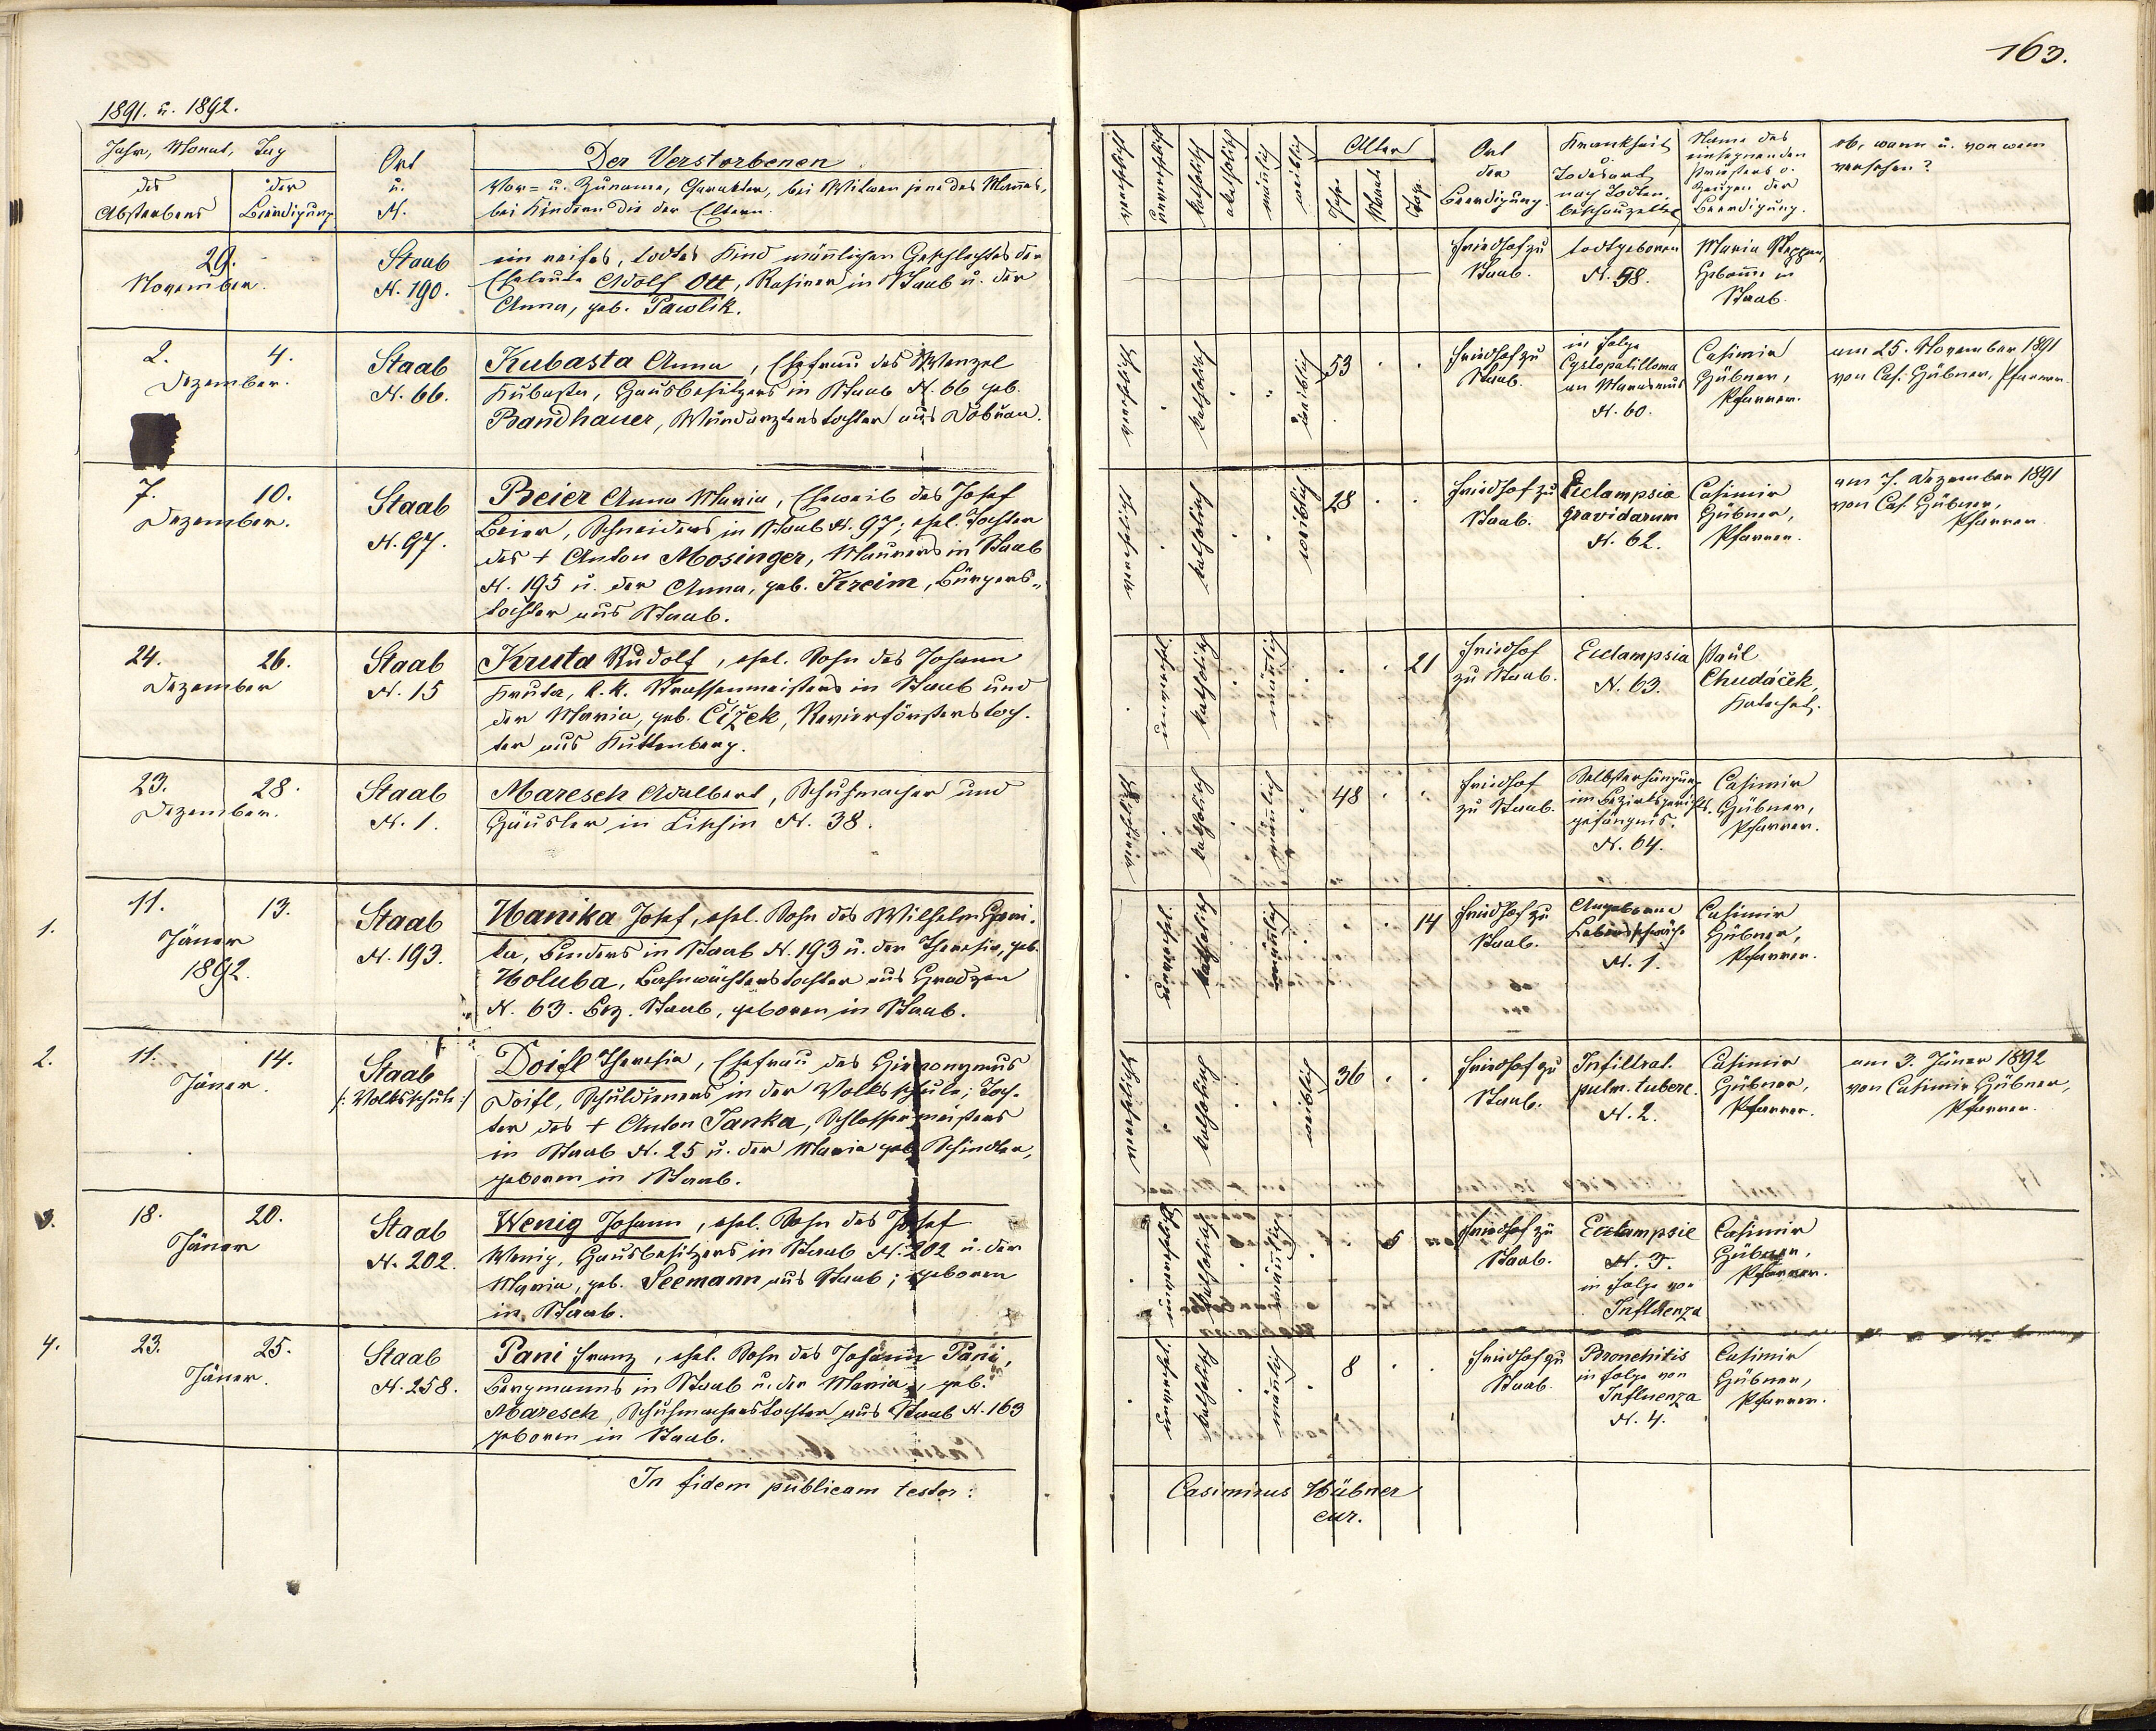 163.
1891. u. 1892.
Jahr, Monat, Tag
des
Absterbens
der
Beerdigung
Ort
u.
N.
Der Verstorbenen
Vor= u. Zuname, Charakter, bei Witwen jene des Mannes,
bei Kindern die der Eltern.
katholisch
akatholisch
männlich
weiblich
Alter
Jahre
Monate
Tage
Ort
der
Beerdigung.
Krankheit
Todesart
nach Todten
beschauzettel
Name des
einsegnenden
Priesters o.
Zeugen der
Beerdigung.
ob, wann u. von wem
versehen?
29.
November.
Staab
N. 190.
ein reifes, todtes Kind männlichen Geschlechtes der
Eheleute Adolf Ott, Rasirer in Staab u. der
Anna, geb. Pawlik.
Friedhof zu
Staab.
todtgeboren
N. 58.
Maria
Hebamme in
Staab.
2. 4.
Dezember.
Staab
N. 66.
Kubasta Anna, Ehefrau des Wenzel
Kubasta, Hausbesitzers in Staab N. 66 geb.
Bandhauer, Wundarztenstochter aus Dobran.
katholisch
weiblich
53
Friedhof zu
Staab.
in Folge
an Marasmus
N. 60.
Casimir
Hübner,
Pfarrer.
am 25. November 1891
von Cas. Hübner, Pfarrer.
7. 10.
Dezember.
Staab
N. 97.
Beier Anna Maria, Eheweib des Josef
Beier, Schneiders in Staab N. 97; ehel. Tochter
des + Anton Mosinger, Maurers in Staab
N. 195 u. der Anna, geb. Kreim, Bürgers-
tochter aus Staab.
katholisch
weiblich
28
Friedhof zu
Staab.
Eclampsia
gravidarum
N. 62.
Casimir
Hübner,
Pfarrer.
am 7. Dezember 1891
von Cas. Hübner,
Pfarrer.
24. 26.
Dezember
Staab
N. 15
Kruta Rudolf, ehel. Sohn des Johann
Kruta, k. k. Strassenmeisters in Staab und
der Maria, geb. Čížek, Revierförsterstoch-
ter aus Kuttenberg.
katholisch
männlich
21
Friedhof
zu Staab.
Eclampsia
N. 63.
Paul
Chudáček,
Katechet.
23. 28.
Dezember.
Staab
N. 1.
Maresch Adalbert, Schuhmacher und
Häusler in Litzin N. 38.
katholisch
männlich
48
Friedhof
zu Staab.
Selbsterhängung
im Bezirksgerichts-
gefängnis.
N. 64.
Casimir
Hübner,
Pfarrer.
1.
11. 13.
Jäner
1892.
Staab
N. 193.
Hanika Josef, ehel. Sohn des Wilhelm Hani-
ka, Binders in Staab N. 193 u. der Theresia, geb.
Holuba, Bahnwächterstochter aus Hradzen
N. 63. Bez. Staab, geboren in Staab.
katholisch
männlich
14
Friedhof zu
Staab.
Angeborene
Lebensschwäche
N. 1.
Casimir
Hübner,
Pfarrer.
2.
11. 14.
Jäner.
Staab
/: Volksschule :/
Doifl Theresia, Ehefrau des Hieronymus
Doifl, Schuldieners in der Volksschule; Toch-
ter des + Anton Janka, Schlossermeisters
in Staab N. 25 u. der Maria geb. Schindler,
geboren in Staab.
katholisch
weiblich
36
Friedhof zu
Staab.
Infiltrat.
pulm. tuberc.
N. 2.
Casimir
Hübner,
Pfarrer.
am 3. Jäner 1892
von Casimir Hübner,
Pfarrer.
3.
18. 20.
Jäner
Staab
N. 202.
Wenig Johann, ehel. Sohn des Josef
Wenig, Hausbesitzers in Staab N. 202 u. der
Maria, geb. Seemann aus Staab; geboren
in Staab.
katholisch
männlich
Friedhof zu
Staab.
Eclampsie
N. 3.
in Folge von
Influenza
Casimir
Hübner,
Pfarrer.
4.
23. 25.
Jäner.
Staab
N. 258.
Pani Franz, ehel. Sohn des Johann Pani,
Bergmanns in Staab u. der Maria, geb.
Maresch, Schuhmacherstochter aus Staab N. 163
geboren in Staab.
katholisch
männlich
8
Friedhof zu
Staab.
Bronchitis
in Folge von
Influenza
N. 4.
Casimir
Hübner,
Pfarrer.
In fidem publicam testor:
Casimirus Hübner
cur.